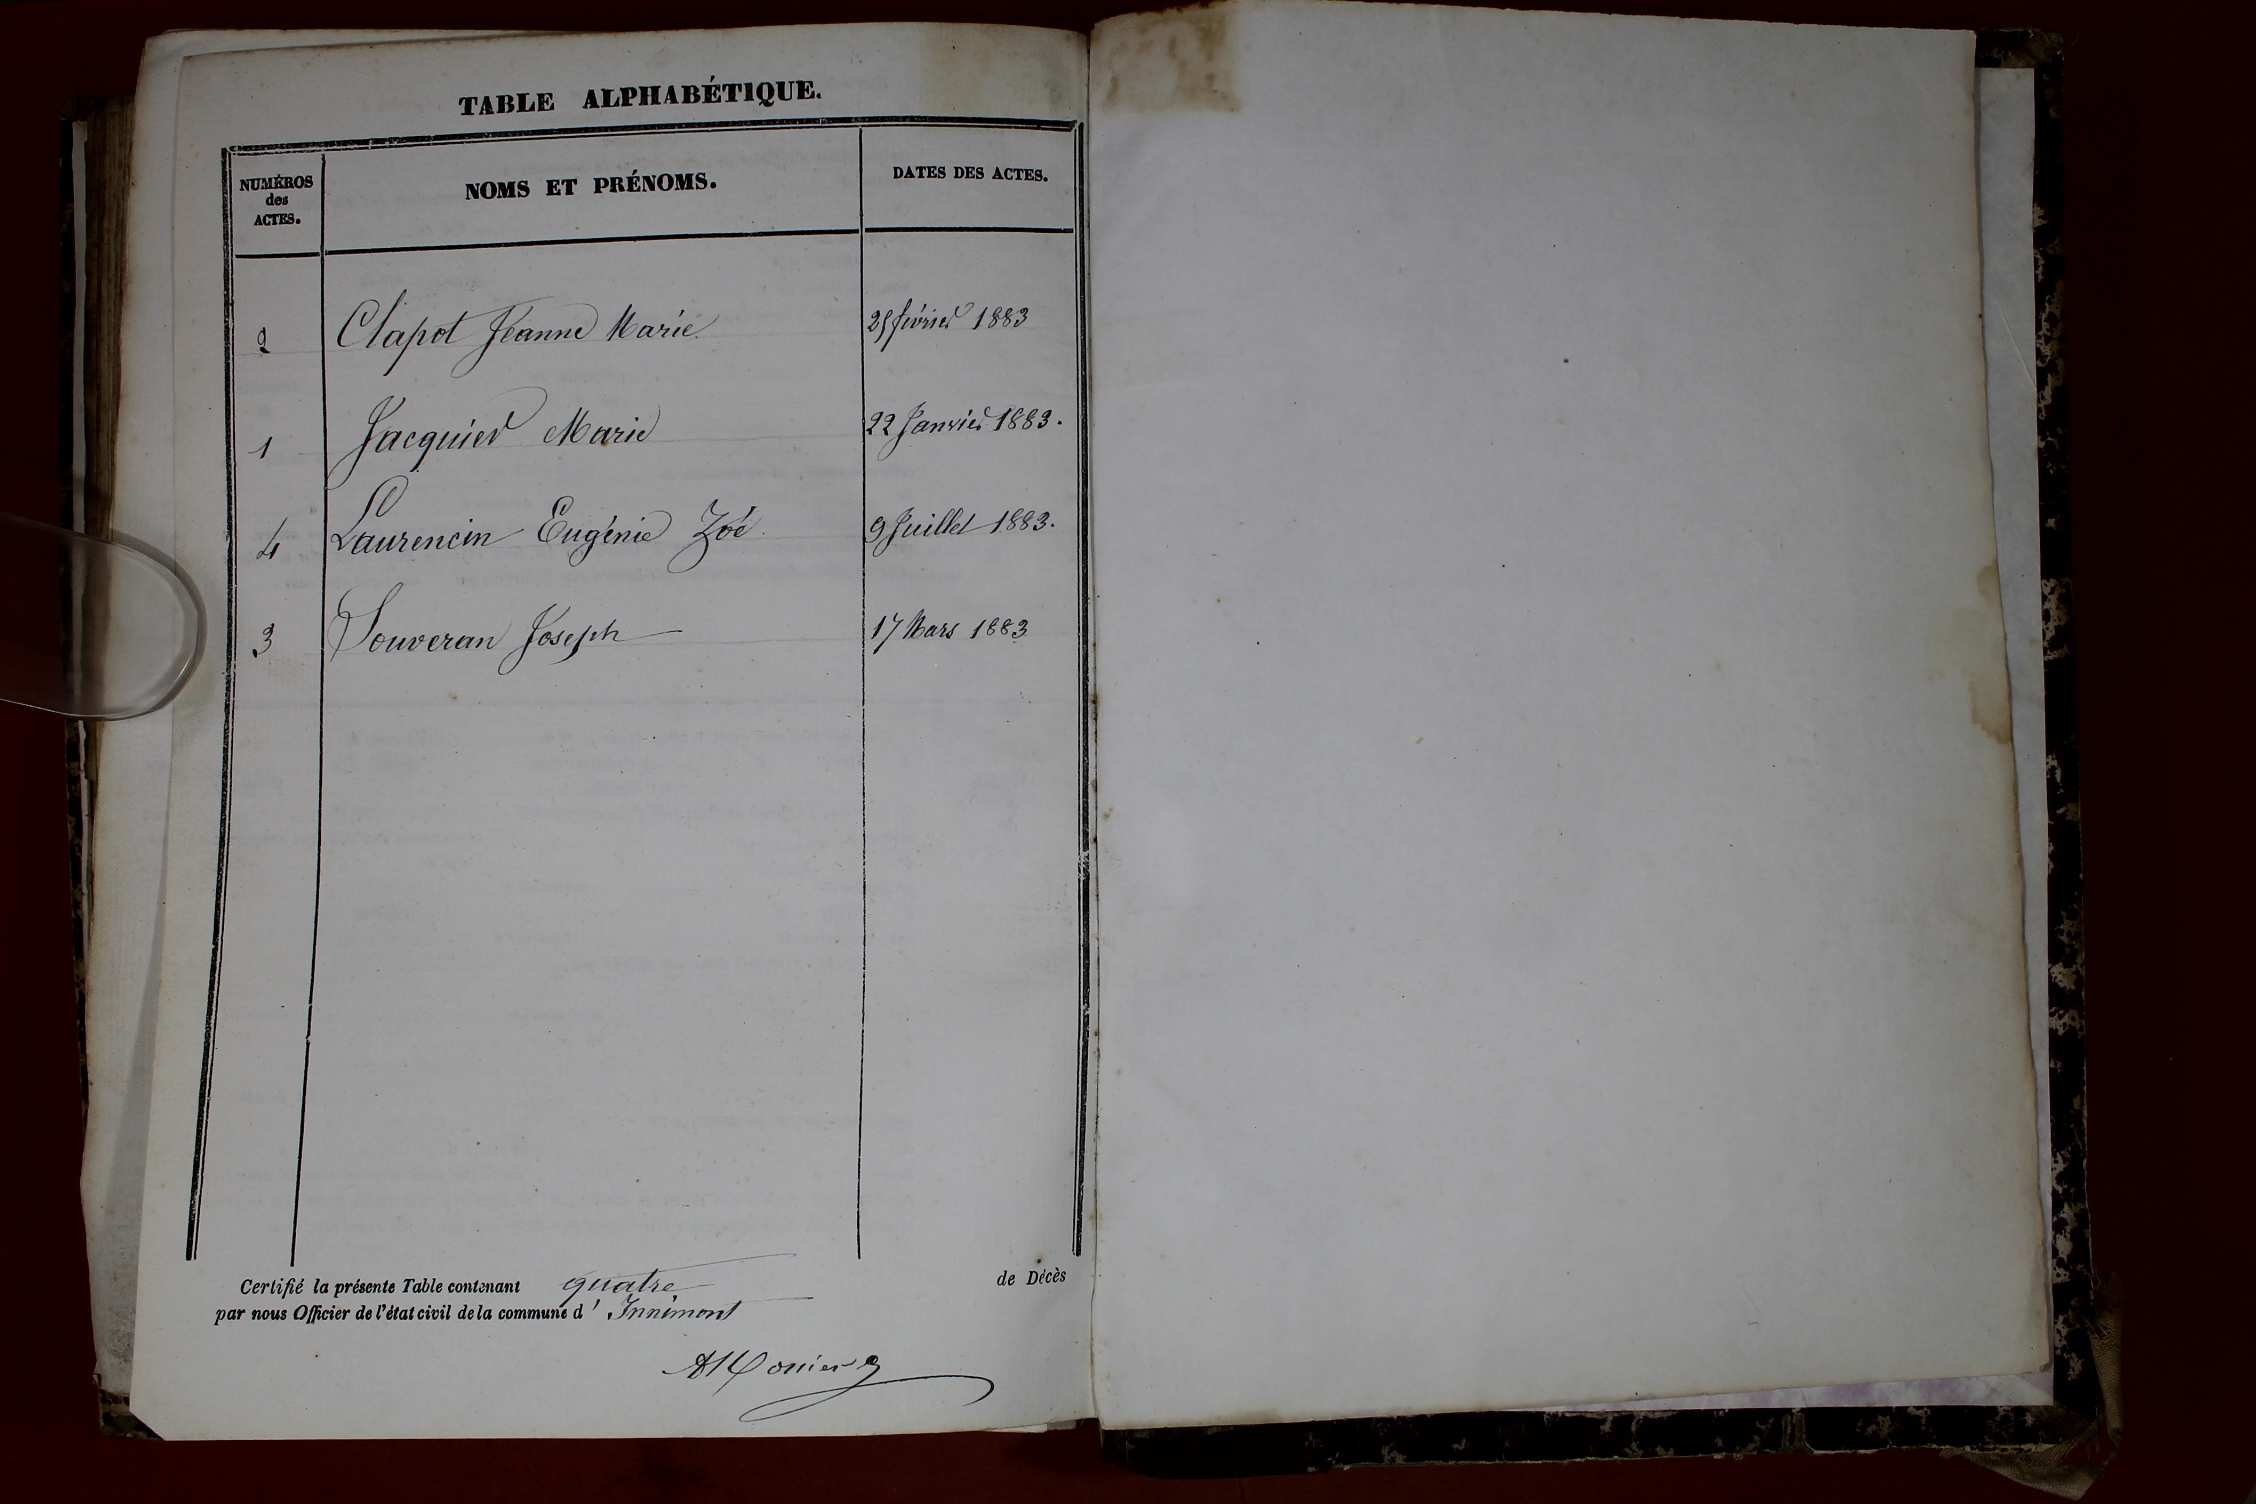 TABLE ALPHABÉTIQUE.
NUMÉROS des ACTES. NOMS ET PRÉNOMS. DATES DES ACTES.
2 Clapot Jeanne Marie. 25 février 1883
1 Jacquier Marie 22 Janvier 1883.
4 Laurencin Eugénie Zoé. 9 Juillet 1883.
3 Souveran Joseph 17 Mars 1883
Certifié la présente Table contenant quatre de Décès
par nous Officier de l'état civil de la commune d' Innimont